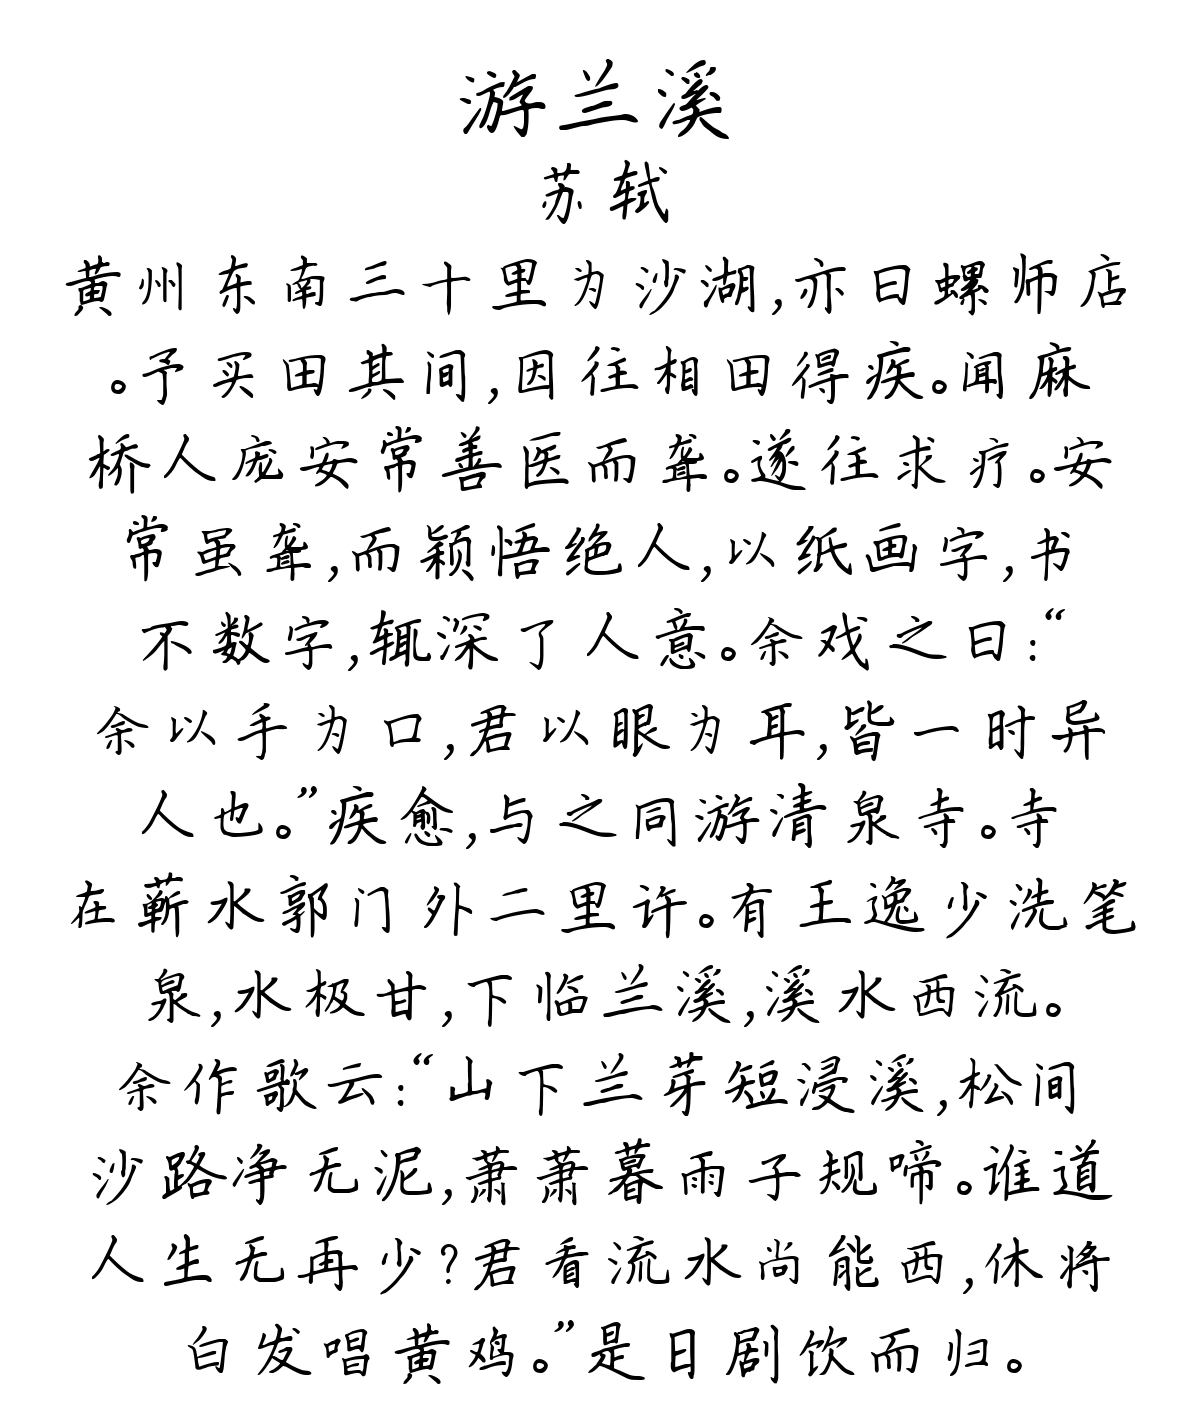 游兰溪
苏轼
黄州东南三十里为沙湖,亦曰螺师店
。予买田其间,因往相田得疾。闻麻
桥人庞安常善医而聋。遂往求疗。安
常虽聋,而颖悟绝人,以纸画字,书
不数字,辄深了人意。余戏之曰:“
余以手为口,君以眼为耳,皆一时异
人也。”疾愈,与之同游清泉寺。寺
在蕲水郭门外二里许。有王逸少洗笔
泉,水极甘,下临兰溪,溪水西流。
余作歌云:“山下兰芽短浸溪,松间
沙路净无泥,萧萧暮雨子规啼。谁道
人生无再少?君看流水尚能西,休将
白发唱黄鸡。”是日剧饮而归。